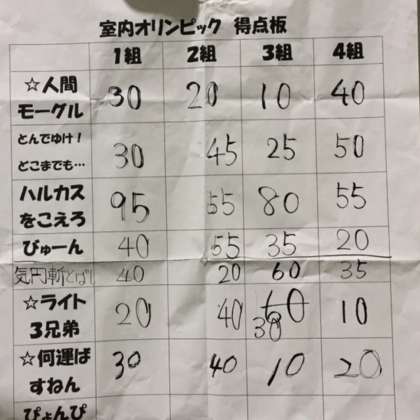 室内オリンピック 得点板
1組 2組 3組 4組
☆人間
モーグル 30 20 10 40
とんでゆけ！
どこまでも… 30 45 25 50
ハルカス
をこえろ 95 55 80 55
びゅーん 40 55 35 20
気円斬とばし 40 20 60 35
☆ライト
3兄弟 20 40 60 10
30
☆何運ば
すねん 30 40 10 20
ぴょんぴ